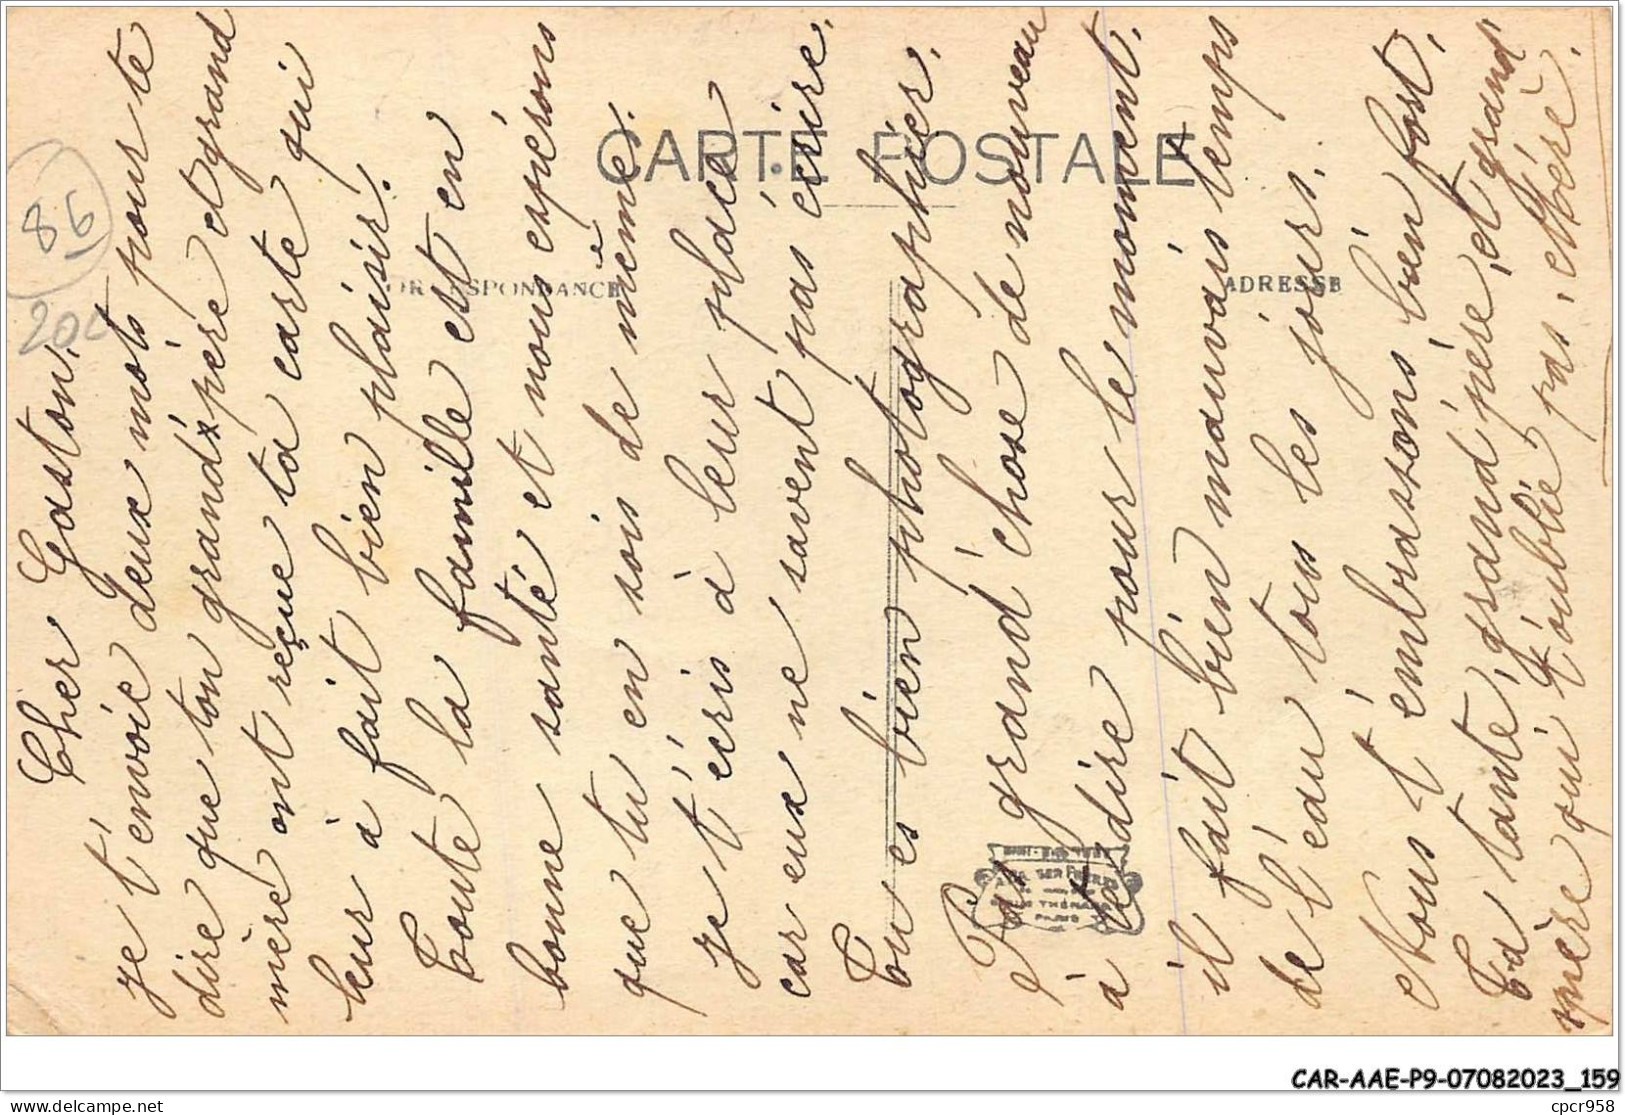 CARTE POSTALE
CORRESPONDANCE
ADRESSE
86
200
Cher Gaston,
je t'envoie deux môts pour te
dire que ton grand'père et grand
mère ont reçue ta carte qui
leur à fait bien plaisir.
Toute la famille est en
bonne santé et nous espérons
que tu en sois de même.
je t'écris à leur place
car eux ne savent pas écrire.
Tu es bien photographier.
Pas grand'chose de nouveau
à te dire pour le moment.
il fait bien mauvais temps
de l'eau tous les jours.
Nous t'embrassons bien fort.
Ta tante, grand père, et grand
mère qui t'oublie pas.
FRERES
PARIS
CAR-AAE-P9-07082023_159
cpcr958